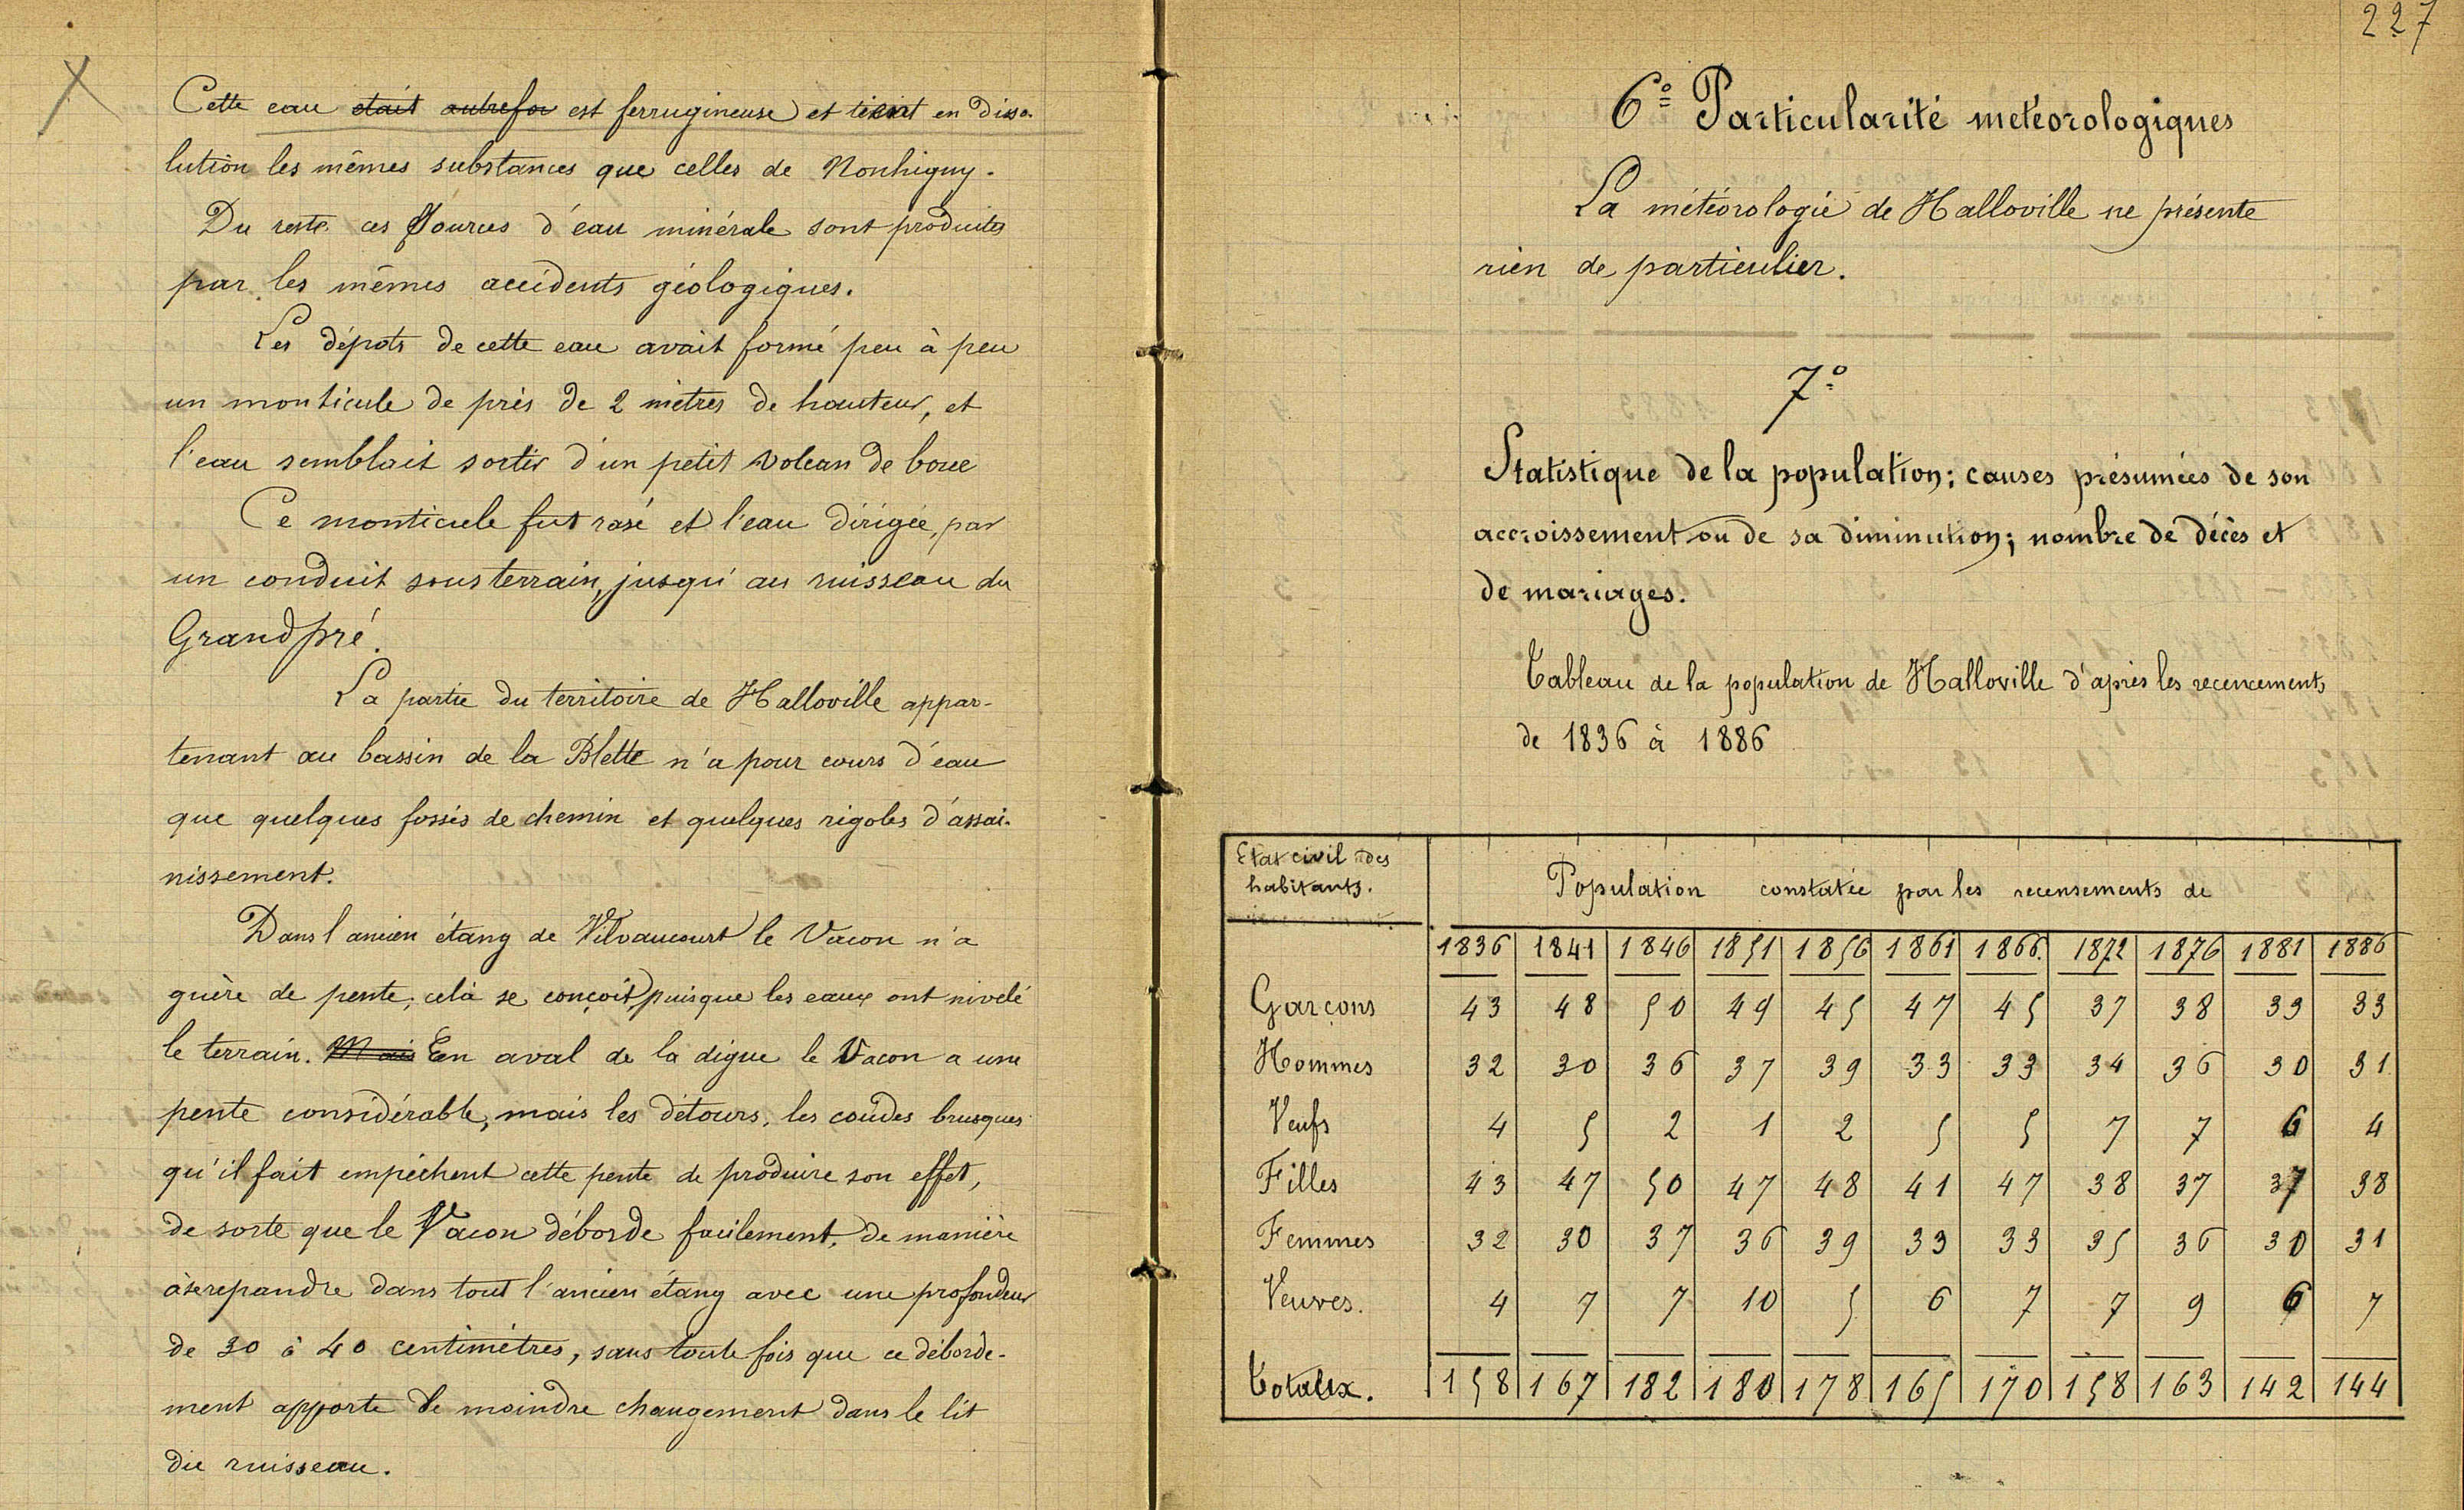 Cette eau était autrefoi est ferrugineuse et tient en disso-
lution les mêmes substances que celles de Nonhigny.
Du reste ces sources d'eau minérale sont produites
par les mêmes accidents géologiques.
Les dépots de cette eau avait formé peu à peu
un monticule de près de 2 mètres de hauteur, et
l'eau semblait sortir d'un petit volcan de boue
Ce monticule fut rasé et l'eau dirigée, par
un conduit sous terrain, jusqu'au ruisseau du
Grandpré.
La partie du territoire de Halloville appar-
tenant au bassin de la Blette n'a pour cours d'eau
que quelques fossés de chemin et quelques rigoles d'assai-
nissement.
Dans l'ancien étang de Vilvaucourt le Vacon n'a
guère de pente; celà se conçoit, puisque les eaux ont nivelé
le terrain. Mais En aval de la digue le Vacon a une
pente considérable, mais les détours, les coudes brusques
qu'il fait empêchent cette pente de produire son effet,
de sorte que le Vacon déborde facilement, de manière
à se repandre dans tout l'ancien étang avec une profondeur
de 30 à 40 centimètres, sans toute fois que ce déborde-
ment apporte le moindre changement dans le lit
du ruisseau.
227
6° Particularité météorologiques
La météorologie de Halloville ne présente
rien de particulier.
7°
Statistique de la population; causes présumées de son
accroissement ou de sa diminution; nombre de décès et
de mariages.
Tableau de la population de Halloville d'après les recencements
de 1836 à 1886
Etat civil des
habitants.
Population constatée par les recensements de
1836 1841 1846 1851 1856 1861 1866. 1872 1876 1881 1886
Garçons 43 48 50 49 45 47 45 37 38 33 33
Hommes 32 30 36 37 39 33 33 34 36 30 31
Veufs 4 5 2 1 2 5 5 7 7 6 4
Filles 43 47 50 47 48 41 47 38 37 37 38
Femmes 32 30 37 36 39 33 33 35 36 30 31
Veuves. 4 7 7 10 5 6 7 7 9 6 7
Totaux. 158 167 182 180 178 165 170 158 163 142 144